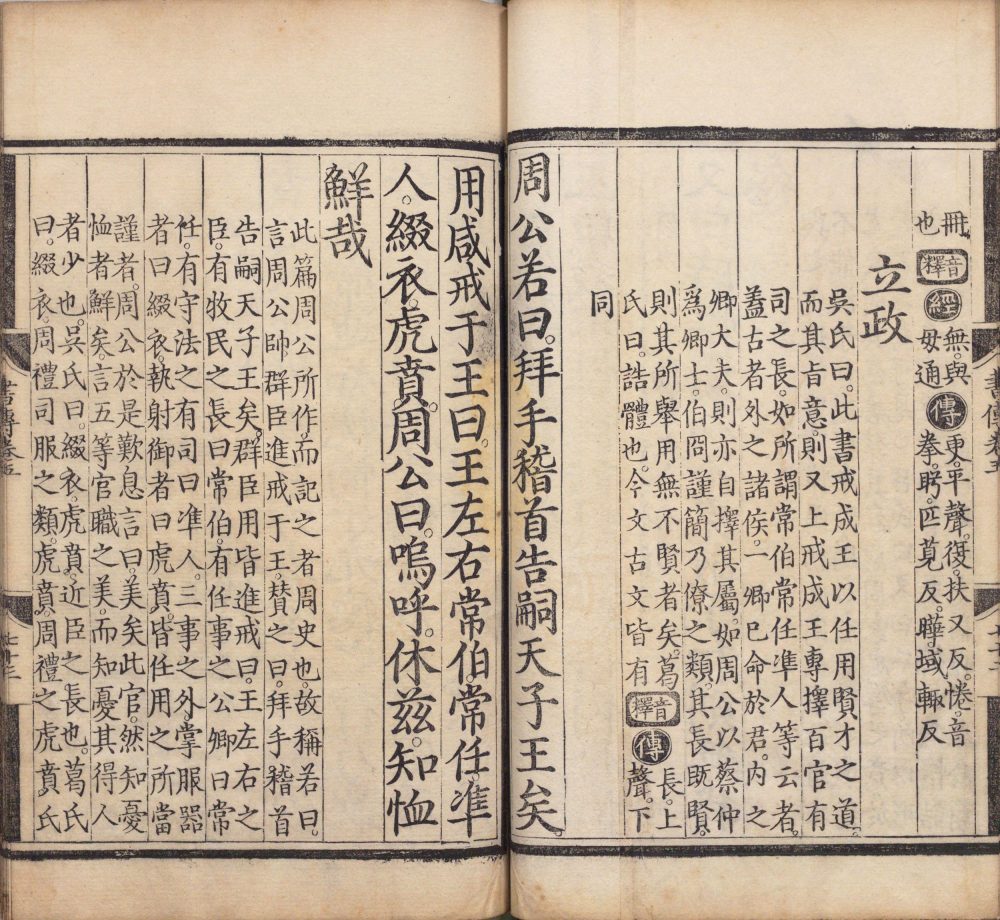 冊
也
音釋
經
無。與
毋通
傳
更。平聲。復。扶又反。惓。音
拳。盼。匹莧反。曄。域輒反
立政
吳氏曰。此書戒成王以任用賢才之道。
而其旨意。則又上戒成王專擇百官有
司之長。如所謂常伯常任準人等云者。
蓋古者外之諸侯。一卿已命於君。內之
卿大夫。則亦自擇其屬。如周公以蔡仲
爲卿士。伯冏謹簡乃僚之類。其長既賢。
則其所舉用無不賢者矣。葛
氏曰。誥體也。今文古文皆有
音釋
傳
長。上
聲。下
同
周公若曰。拜手稽首告嗣天子王矣。
用咸戒于王曰。王左右常伯。常任。準
人。綴衣。虎賁。周公曰。嗚呼。休茲。知恤
鮮哉
此篇周公所作。而記之者周史也。故稱若曰。
言周公帥群臣進戒于王。贊之曰。拜手稽首
告嗣天子王矣。群臣用皆進戒曰。王左右之
臣。有牧民之長曰常伯。有任事之公卿曰常
任。有守法之有司曰準人。三事之外。掌服器
者曰綴衣。執射御者曰虎賁。皆任用之所當
謹者。周公於是歎息言曰。美矣此官。然知憂
恤者鮮矣。言五等官職之美。而知憂其得人
者少也。吳氏曰。綴衣。虎賁。近臣之長也。葛氏
曰。綴衣。周禮司服之類。虎賁。周禮之虎賁氏
書傳卷五